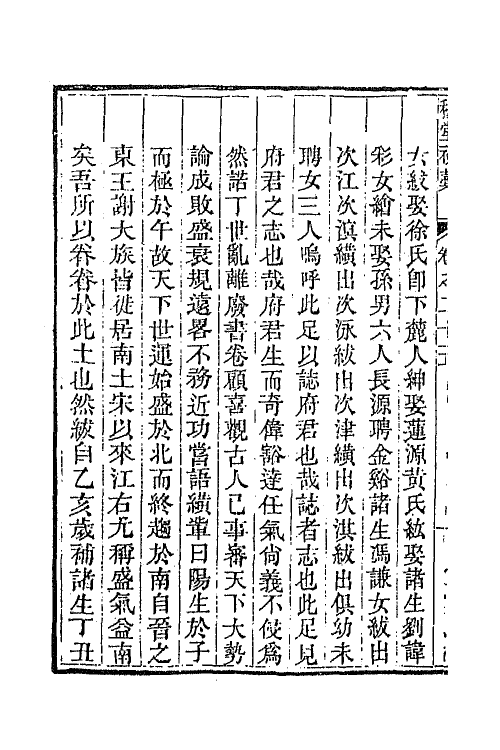 女紱娶徐氏卽下麓人紳娶蓮源黃氏紘娶諸生劉諱
彩女繪未娶孫男六人長源聘金谿諸生馮謙女紱出
次江次滇纊出次泳紱出次津纊出次淇紱出俱幼未
聘女三人嗚呼此足以誌府君也哉誌者志也此足見
府君之志也哉府君生而奇偉豁達任氣尚義不侵爲
然諾丁世亂離廢書卷顧喜觀古人已事審天下大勢
論成敗盛衰規遠畧不務近功嘗語纊輩曰陽生於子
而極於午故天下世運始盛於北而終趨於南自晉之
東王謝大族皆徙居南土宋以來江右尤稱盛氣益南
矣吾所以眷眷於此土也然紱自乙亥歲補諸生丁丑